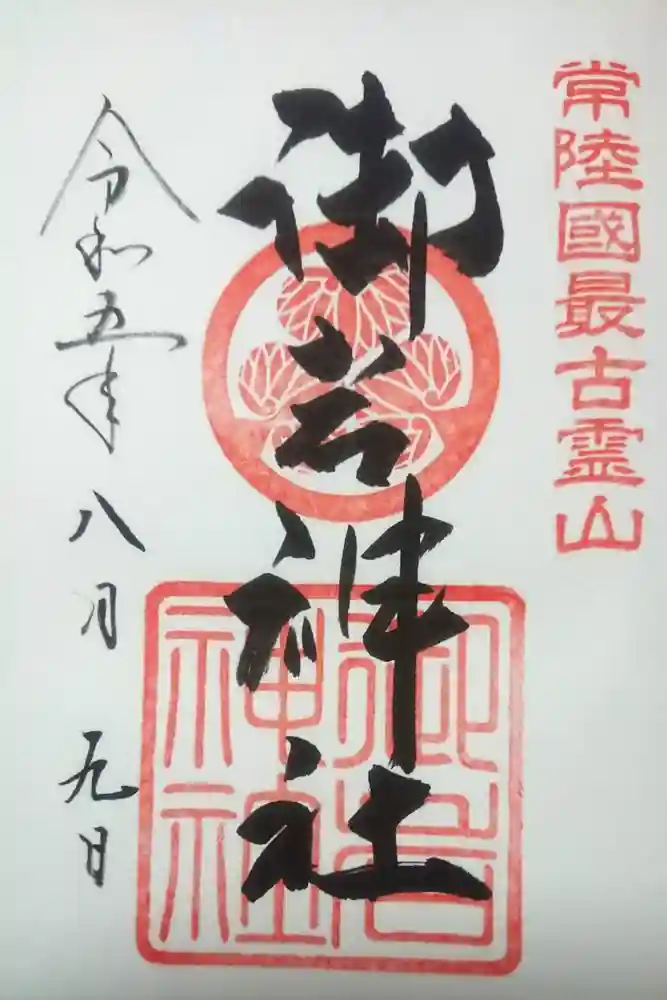 常陸國最古霊山
御岩神社
御岩
神社
令和五年八月九日